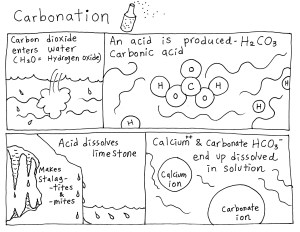 Carbonation
Carbon dioxide
enters water
(H2O = Hydrogen oxide)
An acid is produced - H2CO3
Carbonic acid
O
H
O
C
O
H
Acid dissolves
limestone
Makes
Stalag-
-tites
&
-mites
Calcium++ & Carbonate HCO3-
end up dissolved
in solution
Calcium
ion
Carbonate
ion